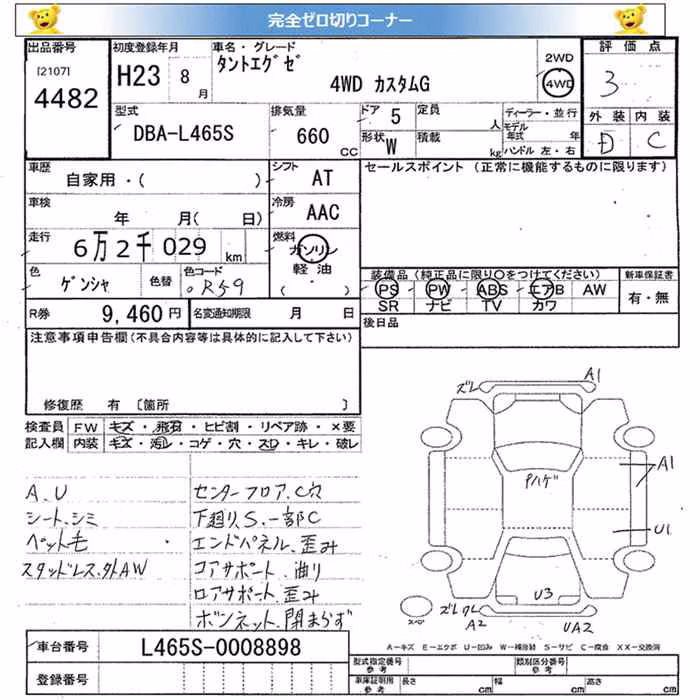 完全ゼロ切りコーナー
出品番号
[2107]
4482
初度登録年月
H23 8
月
車名・グレード
タントエグゼ
4WD カスタムG
2WD
4WD
評価点
3
外装 内装
D C
型式
DBA-L465S
排気量
660
CC
ドア 5
形状 W
定員
人
積載
kg
ディーラー・並行
モデル
年式 年
ハンドル 左・右
車歴
自家用・( )
シフト
AT
セールスポイント (正常に機能するものに限ります)
車検
年 月( 日)
冷房
AAC
走行
6万2千029
km
燃料
ガソリン
軽油
( ・ )
色
ゲンシャ
色替
色コード
R59
装備品(純正品に限り○をつけてください)
PS PW ABS エアB AW
SR ナビ TV カワ
新車保証書
有・無
R券
9,460円
名変通知期限
月 日
後日品
注意事項申告欄(不具合内容等は具体的に記入して下さい)
修復歴 有 〔箇所 〕
検査員
記入欄
FW キズ・飛石・ヒビ割・リペア跡・×要
内装 キズ・汚レ・コゲ・穴・スレ・キレ・破レ
A.U
シート.シミ
ペット毛
スタッドレス.外AW
センターフロア.C穴
下廻り.S.一部C
エンドパネル.歪み
コアサポート.曲り
ロアサポート.歪み
ボンネット.閉まらず
ズレ
A1
Pハゲ
A1
U1
U3
スペ
ズレ ワレ
A2
UA2
A-キズ E-エクボ U-凹み W-補修跡 S-サビ C-腐食 XX-交換済
車台番号
L465S-0008898
登録番号
型式指定番号
参考
類別区分番号
参考
車庫証明用
参考
長さ
cm
幅
cm
高さ
cm